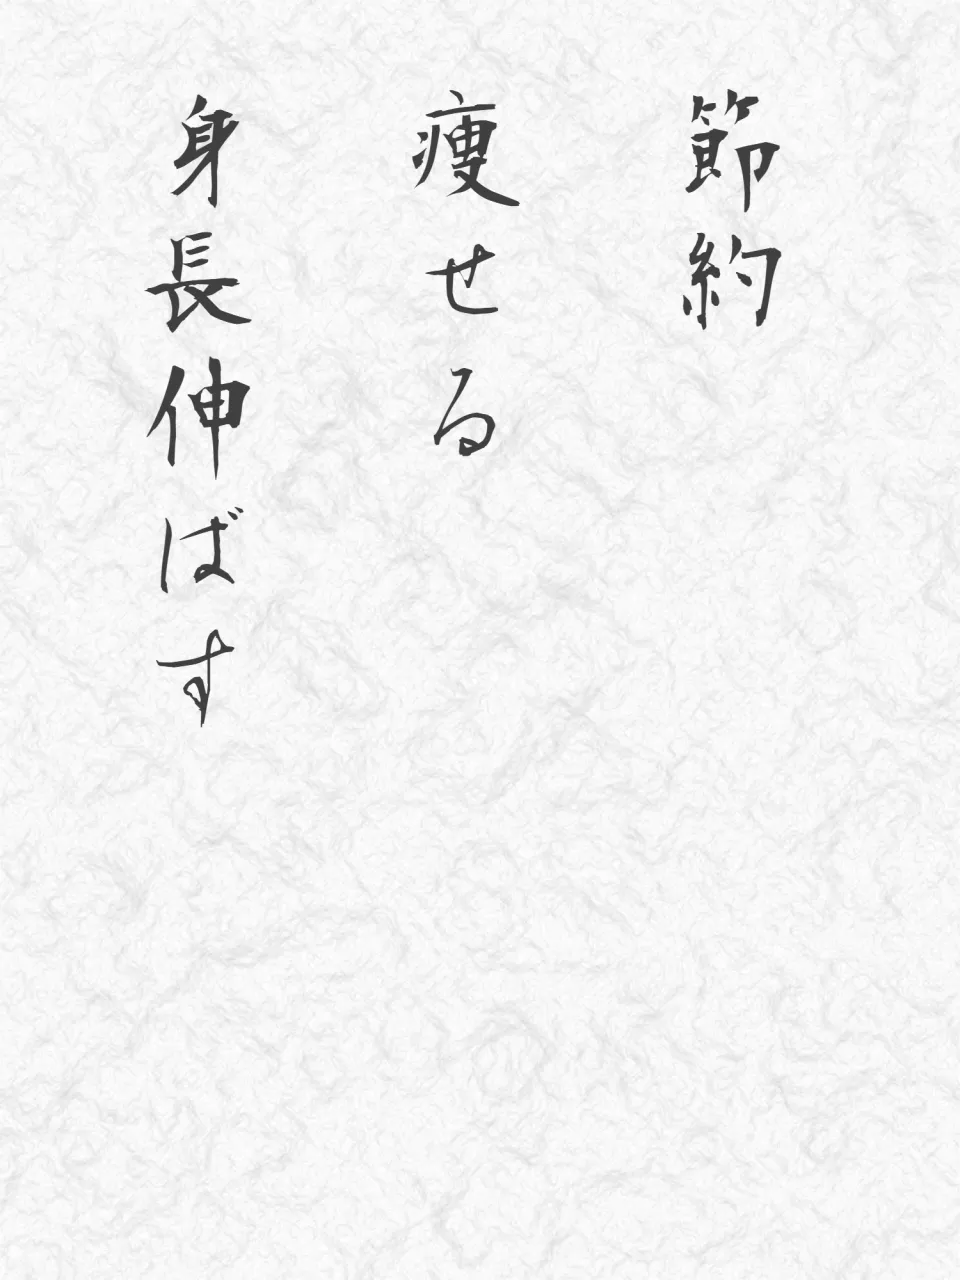 節約
痩せる
身長伸ばす